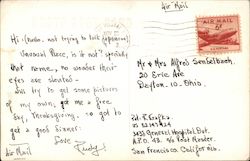 Air Mail
Hi - (Radio, not trying to look Japanese)
Unusual Place, is it not? Specially
that name, no wonder their
eyes are slanted -
Will try to get some pictures
of my own, got me a free
day, Thanksgiving. So got to
get a good dinner.
Love
Rudy
Air Mail
AIR MAIL
6¢
Mr & Mrs Alfred Senselbach,
20 Erie Ave
Dayton. 10. Ohio.
3455 General Hospital Det.
A.P.O. 43. % Post Master.
San Francisco California.